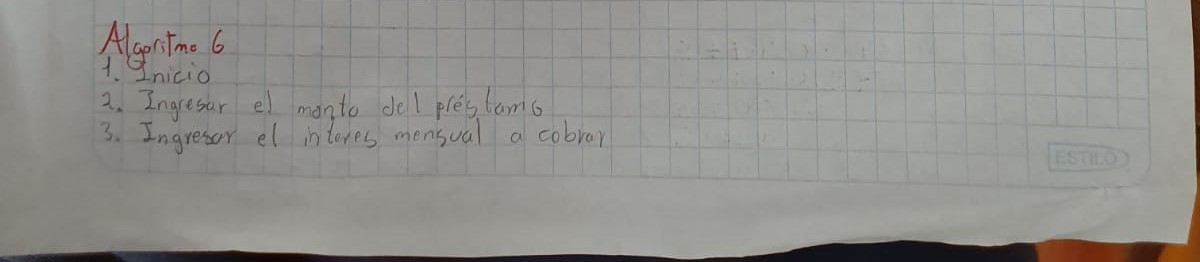 Algoritmo 6
1. Inicio
2. Ingresar el monto del préstamo
3. Ingresar el interes mensual a cobrar
ESTILO